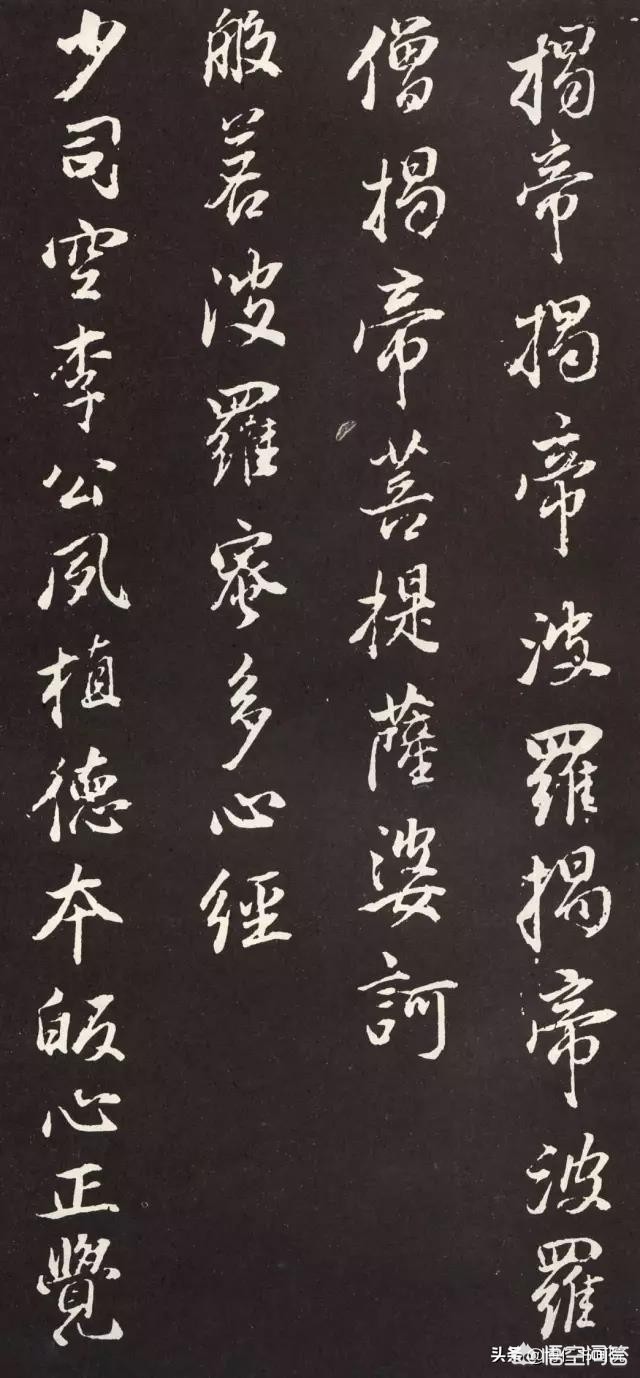 揭帝揭帝波羅揭帝波羅
僧揭帝菩提薩婆訶
般若波羅蜜多心經
少司空李公夙植德本皈心正覺
头条
悟空问答